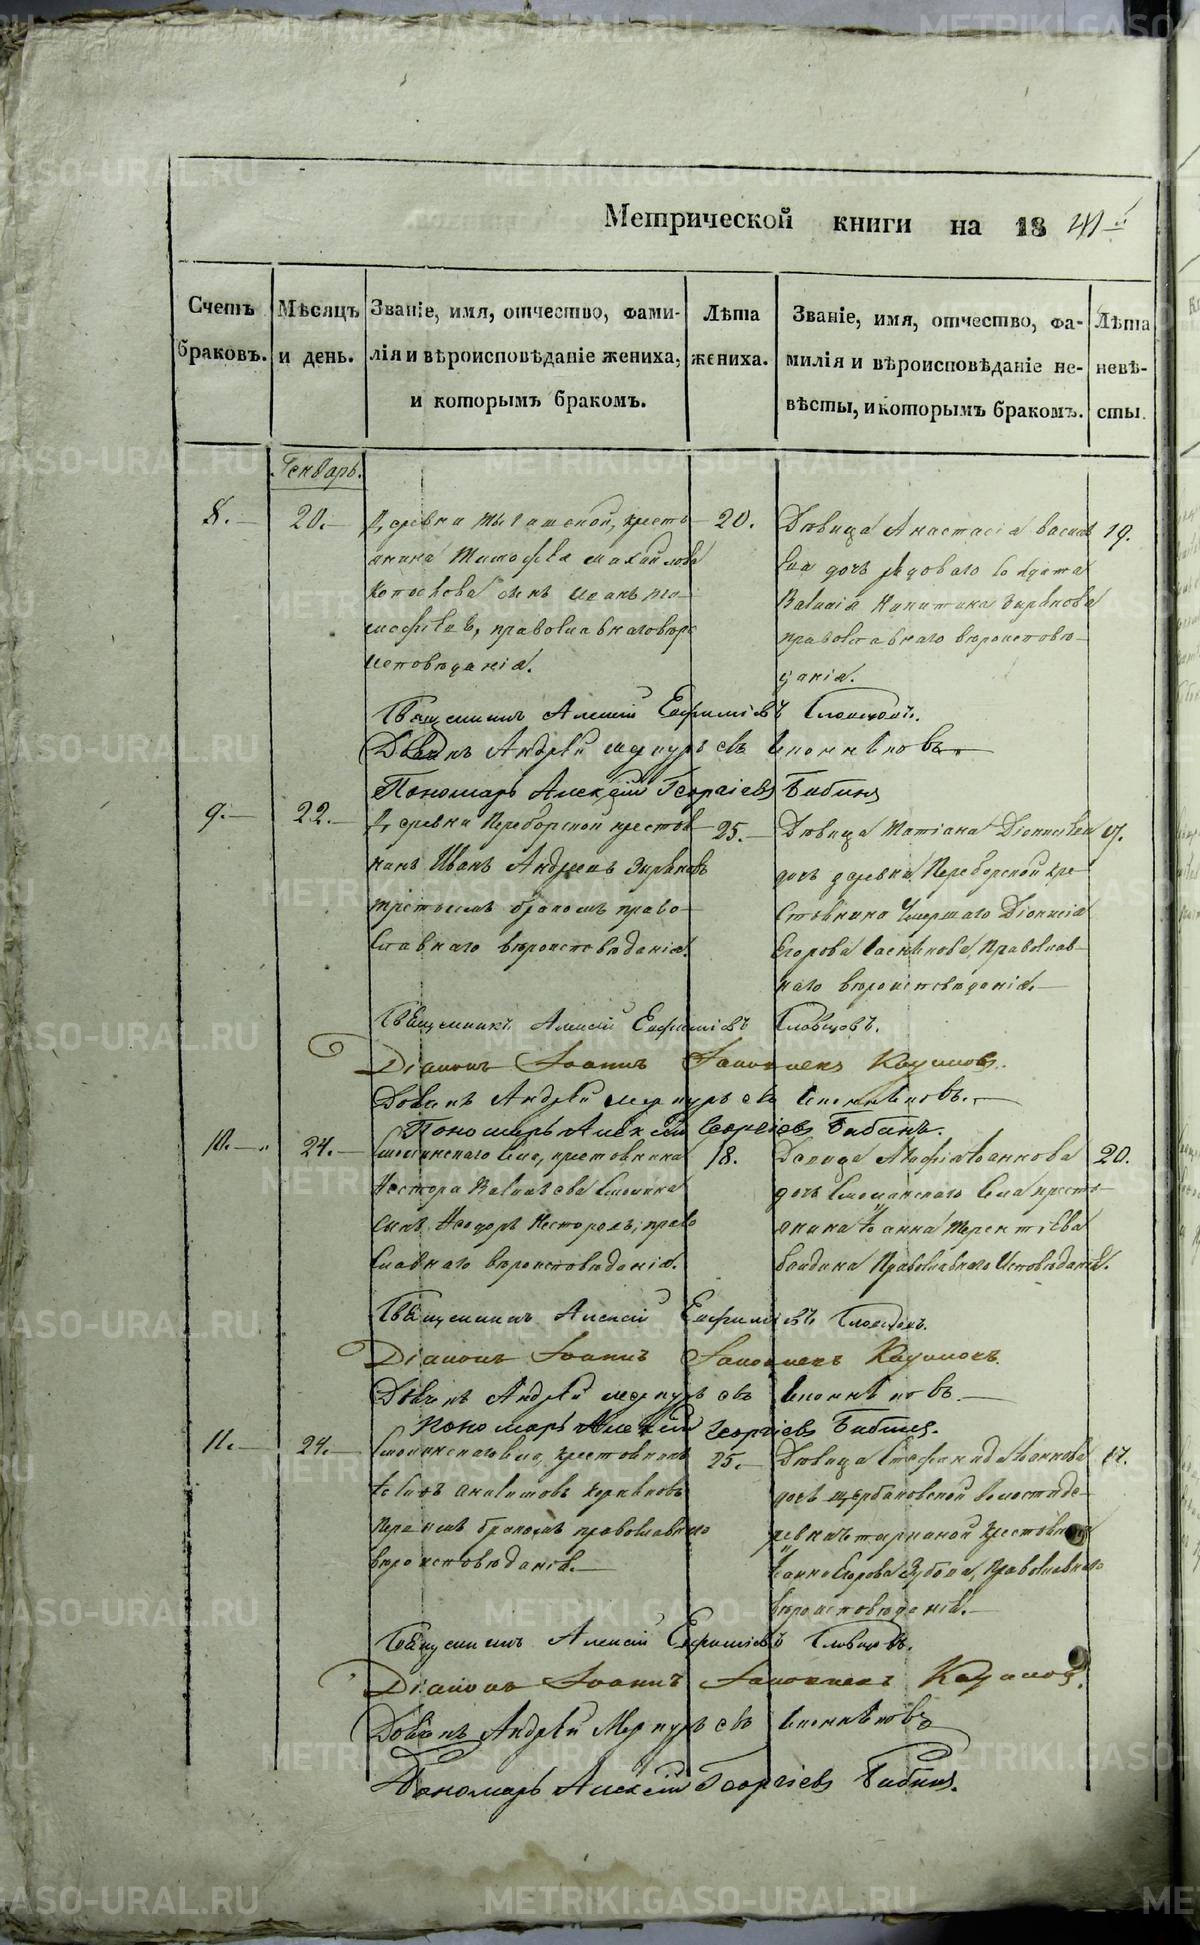 Метрической книги на 1841й
Счетъ браковъ.
Мѣсяцъ и день.
Званіе, имя, отчество, фами-
лія и вѣроисповѣданіе жениха,
и которымъ бракомъ.
Лѣта
жениха.
Званіе, имя, отчество, фа-
милія и вѣроисповѣданіе не-
вѣсты, и которымъ бракомъ.
Лѣта
невѣ-
сты.
Генварь.
8.
20.
Деревни кресть
янина Тимофѣя Михайлова
сынъ Иванъ Ти-
мофѣевъ, православнаго вѣро
исповѣданія.
20.
Дѣвица Анастасія Василь
ева дочь рядоваго солдата
Василія Никитина Зырянова
православнаго вѣроисповѣ-
данія.
19.
Священникъ Алексій Евфиміевъ Словцовъ.
Дьячекъ Андрей Меркурьевъ
Пономарь Алексій Георгіевъ Бабинъ
9.
22.
Деревни Переборской крестья
нинъ Иванъ Андреевъ Зыряновъ
третьимъ бракомъ право-
славнаго вѣроисповѣданія.
25.
Дѣвица Татіана Діонисьева
дочь деревни Переборской кре
стьянина умершаго Діонисія
Егорова православ-
наго вѣроисповѣданія.
17.
Священникъ Алексій Евфиміевъ Словцовъ.
Діаконъ Іоаннъ
Дьячекъ Андрей Меркурьевъ
Пономарь Алексій Георгіевъ Бабинъ.
10.
24.
Смолинскаго села, крестьянина
Нестора Васильева Смолина
сынъ Ѳеодоръ Несторовъ, право
славнаго вѣроисповѣданія.
18.
Дѣвица Іоаннова
дочь Смолинскаго села кресть-
янина Іоанна Терентіева
православнаго исповѣданія.
20.
Священникъ Алексій Евфиміевъ Словцовъ.
Діаконъ Іоаннъ
Дьячекъ Андрей Меркурьевъ
Пономарь Алексій Георгіевъ Бабинъ.
11.
24.
Смолинскаго села, крестьянинъ
первымъ бракомъ православнаго
вѣроисповѣданія.
25.
Дѣвица Стефанида Іоаннова
дочь Щербаковской волости де-
ревни крестьянина
Іоанна Егорова Зубова, православнаго
вѣроисповѣданія.
17.
Священникъ Алексій Евфиміевъ Словцовъ.
Діаконъ Іоаннъ
Дьячекъ Андрей Меркурьевъ
Пономарь Алексій Георгіевъ Бабинъ.
METRIKI.GASO-URAL.RU